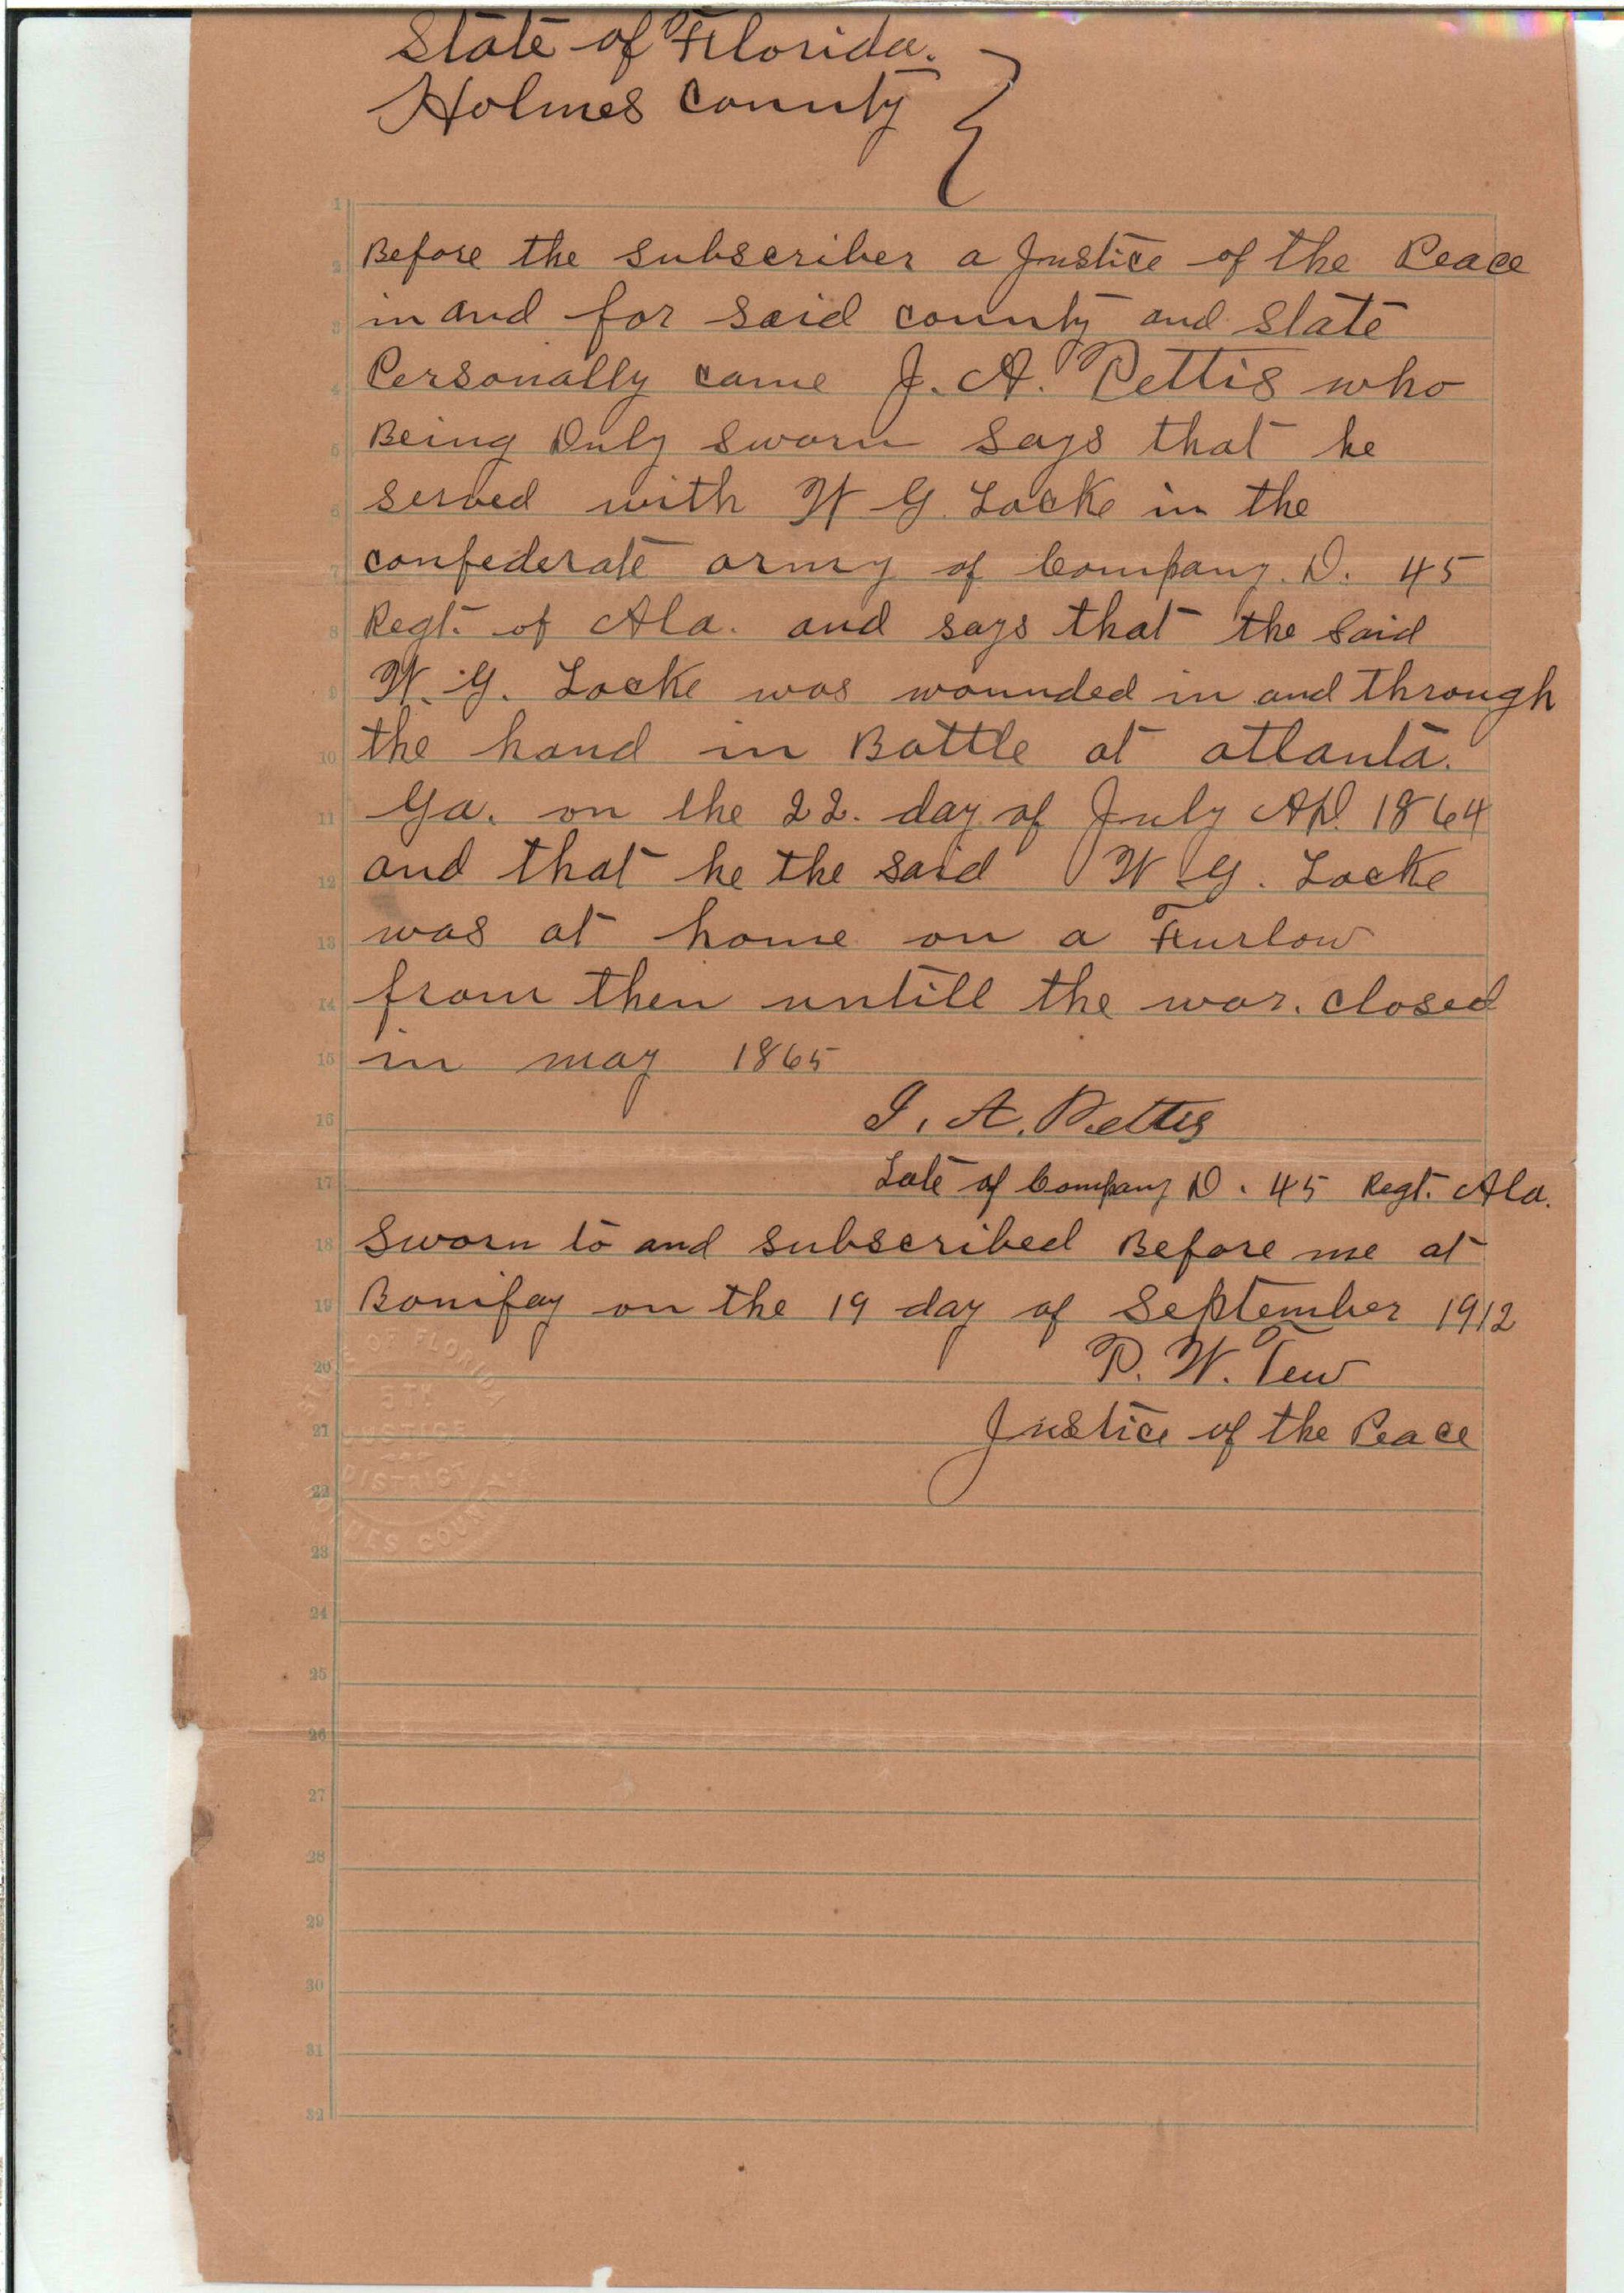 State of Florida.
Holmes County
1
2 Before the subscriber a Justice of the Peace
3 in and for said county and State
4 Personally came J. A. Pettis who
5 Being Duly sworn says that he
6 served with W G. Locke in the
7 confederate army of Company. D. 45
8 Regt. of Ala. and says that the said
9 W. G. Locke was wounded in and through
10 the hand in Battle at atlanta.
11 Ga. on the 22. day of July AD. 1864
12 and that he the said W G. Locke
13 was at home on a Furlow
14 from then untill the war. closed
15 in may 1865
16 J. A. Pettis
17 Late of Company D. 45 Regt. Ala.
18 Sworn to and subscribed Before me at
19 Bonifay on the 19 day of September 1912
20 P. W. Tew
21 Justice of the Peace
22
23
24
25
26
27
28
29
30
31
32
OF FLORIDA
5TH
JUSTICE
DISTRICT
HOLMES COUNTY